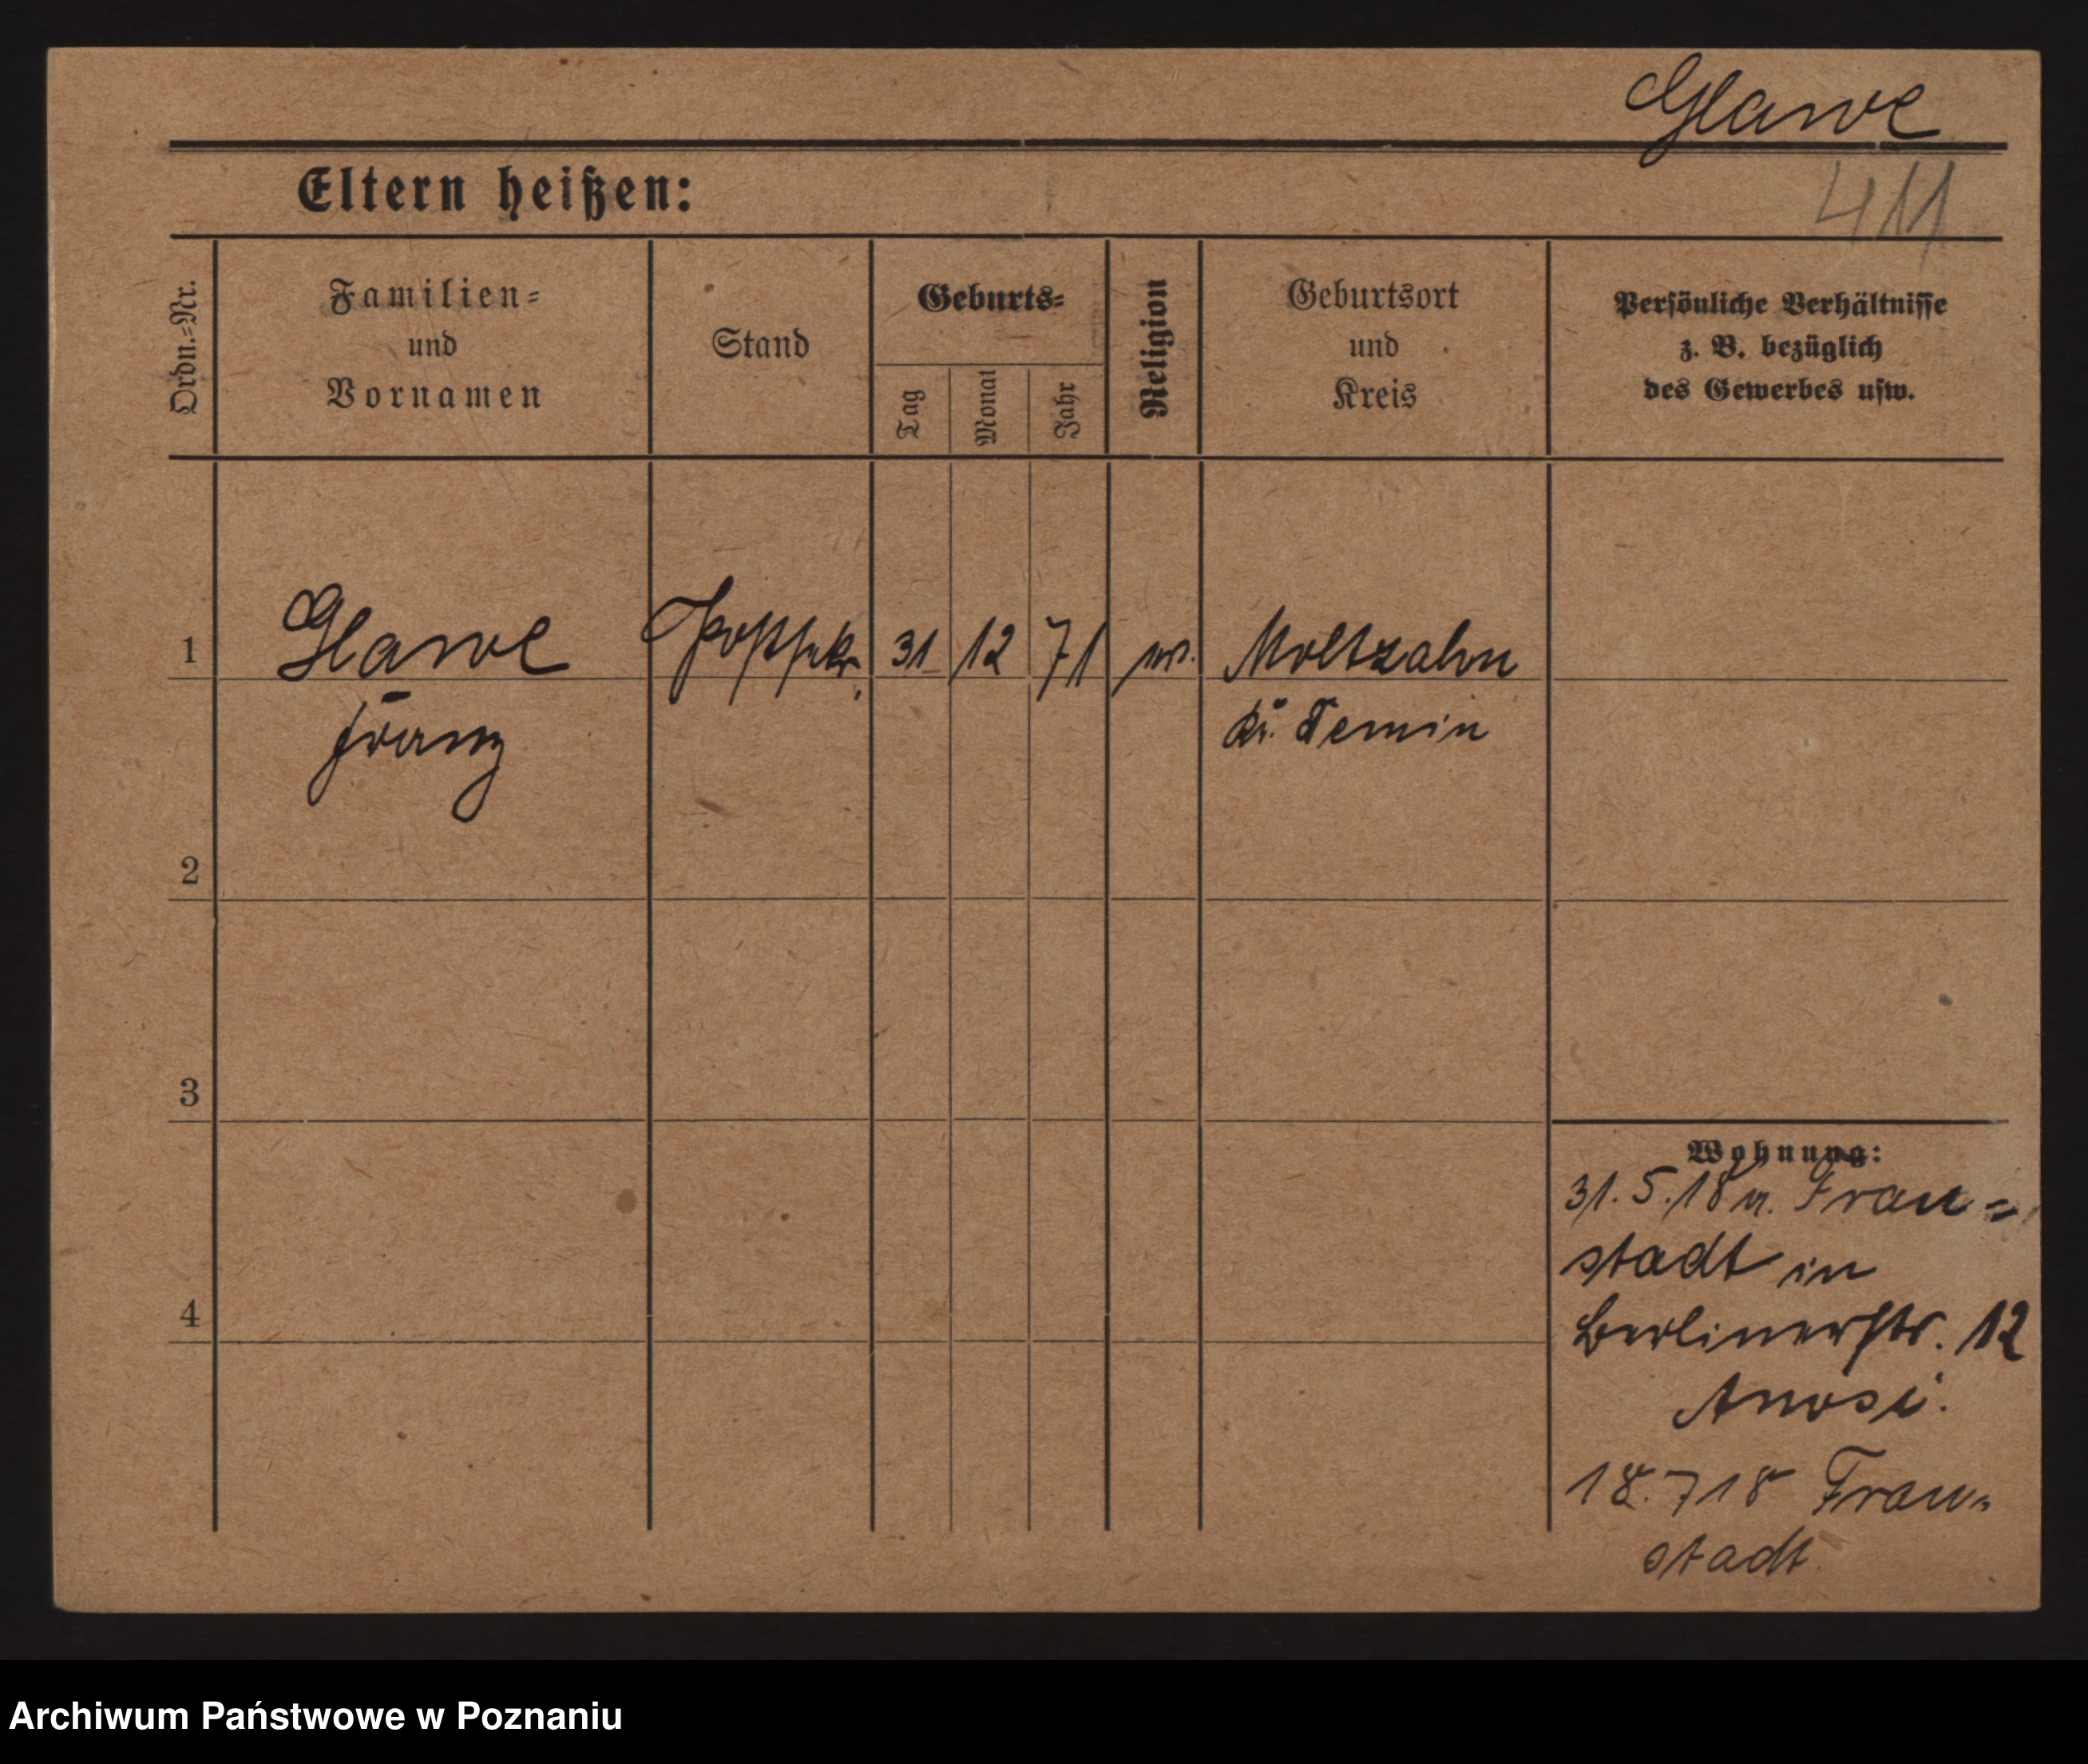 Glawe
411
Eltern heißen:
Ordn.=Nr.
Familien=
und
Vornamen
Stand
Geburts=
Tag
Monat
Jahr
Religion
Geburtsort
und
Kreis
Persönliche Verhältnisse
z. B. bezüglich
des Gewerbes usw.
1 Glawe Postsekr. 31 12 71 Moltzahn
Franz Kr. Demin
2
3
4
Wohnung:
31. 5. 18 v. Frau=
stadt in
Berlinerstr. 12
18. 7 18 Frau=
stadt.
Archiwum Państwowe w Poznaniu